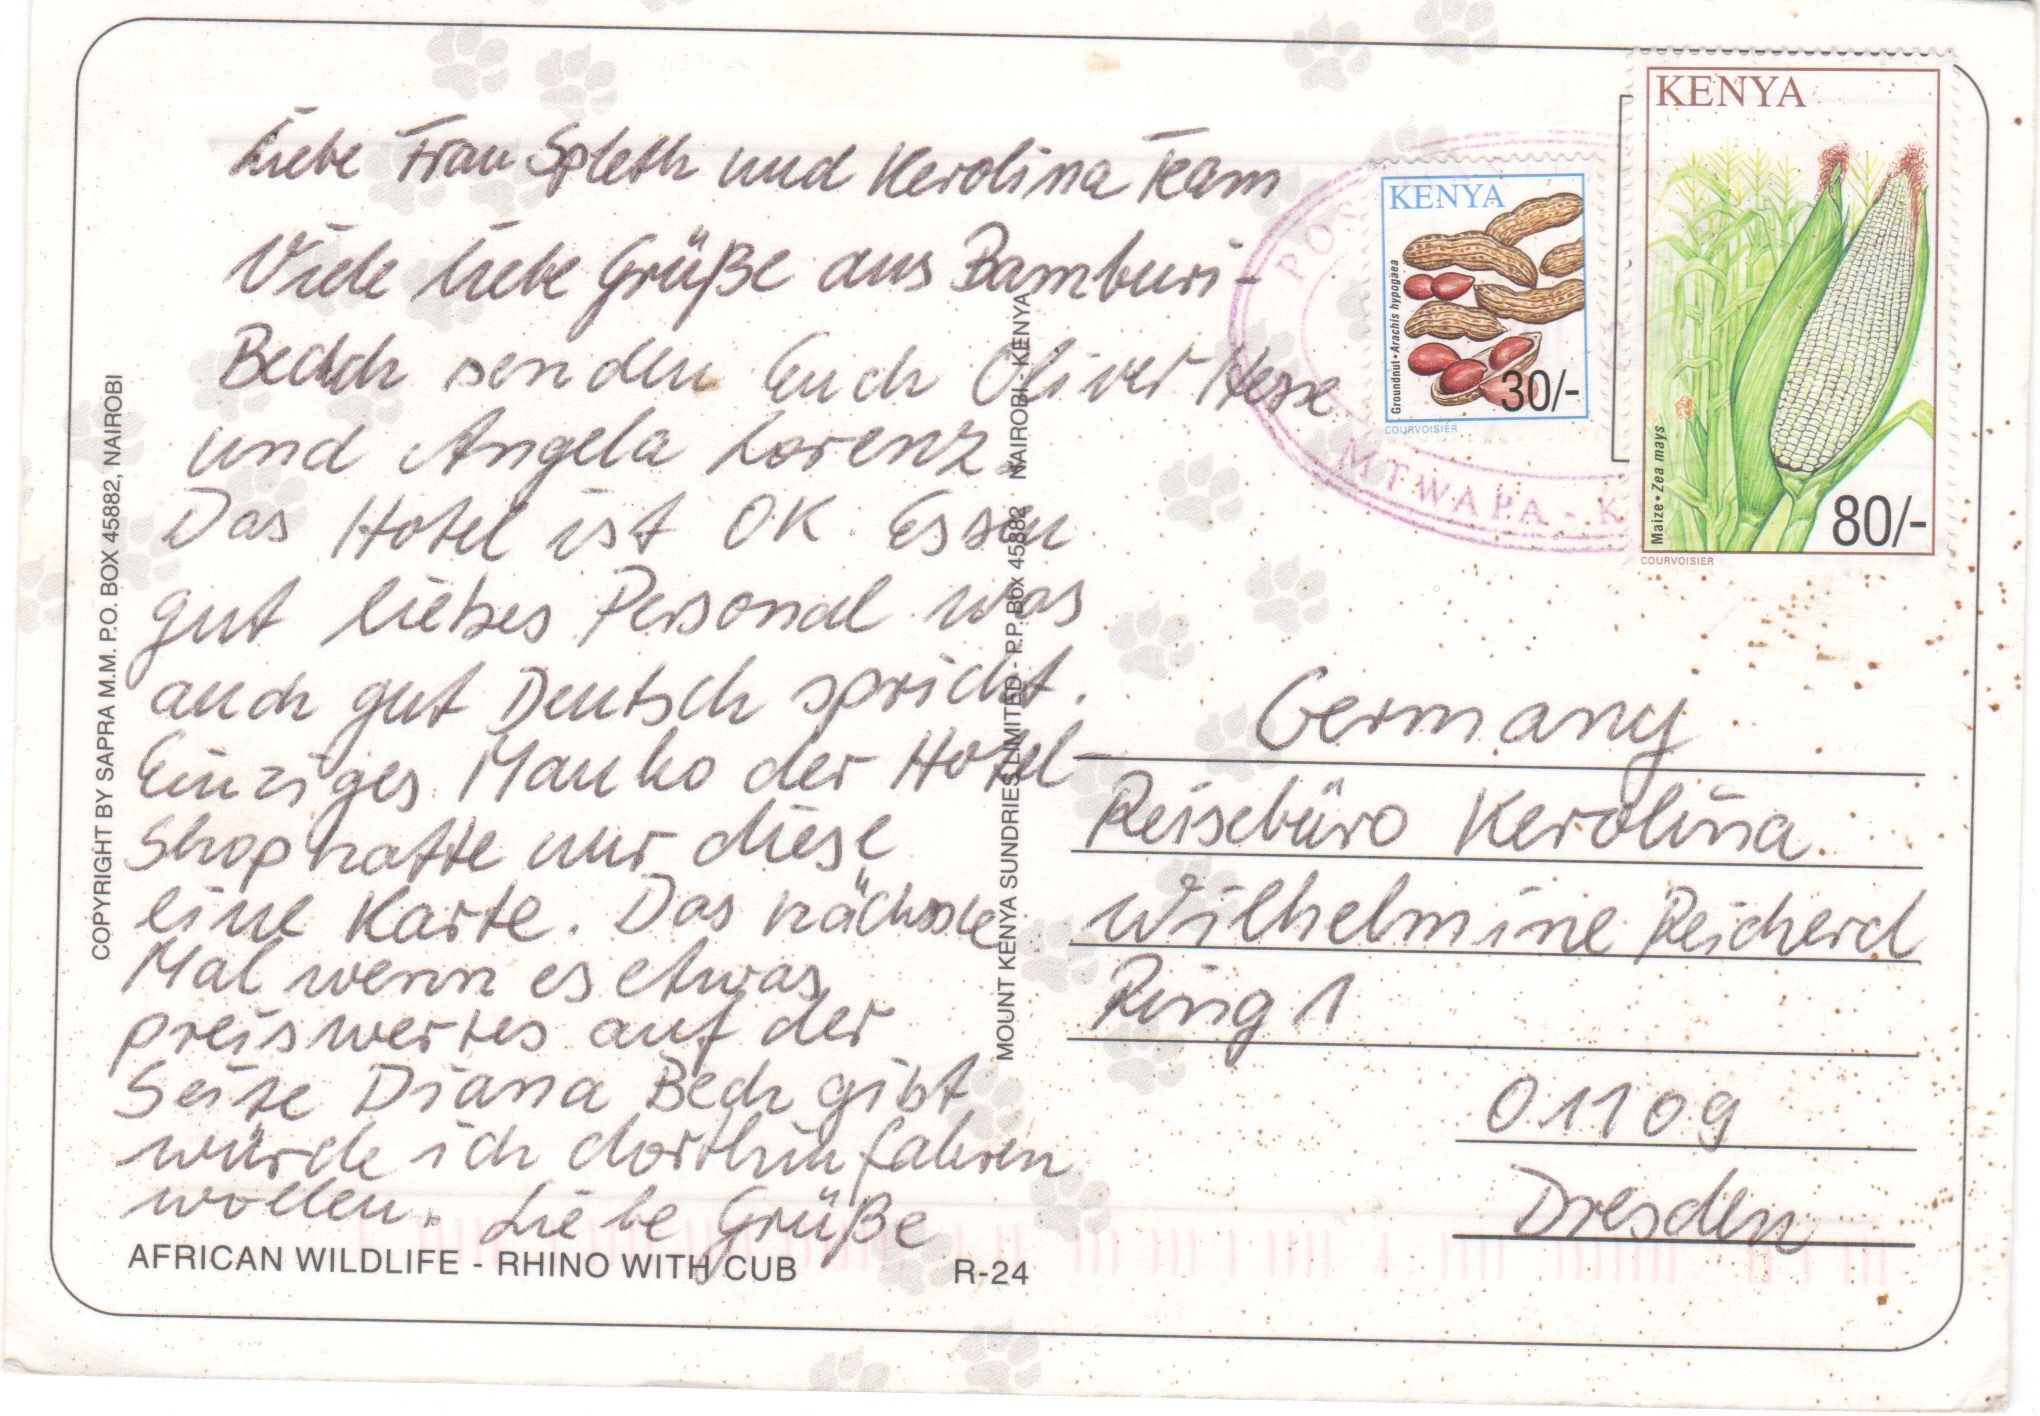 Liebe Frau Spleth und Kerolina Team
Viele liebe Grüße aus Bamburi-
Beach senden Euch Oliver Hesse
und Angela Lorenz.
Das Hotel ist OK. Essen
gut liebes Personal was
auch gut Deutsch spricht.
Einziges Manko der Hotel-
Shop hatte nur diese
eine Karte. Das nächste
Mal wenn es etwas
preiswertes auf der
Seite Diana Bech gibt
würde ich dorthin fahren
wollen. Liebe Grüße
AFRICAN WILDLIFE - RHINO WITH CUB R-24
COPYRIGHT BY SAPRA M.M. P.O. BOX 45882, NAIROBI
MOUNT KENYA SUNDRIES LIMITED - P.P. BOX 45882 NAIROBI - KENYA
POS
MTWAPA - K
KENYA
Groundnut • Arachis hypogaea
30/-
COURVOISIER
KENYA
Maize • Zea mays
80/-
COURVOISIER
Germany
Reisebüro Kerolina
Wilhelmine Reicherd
Ring 1
01109
Dresden